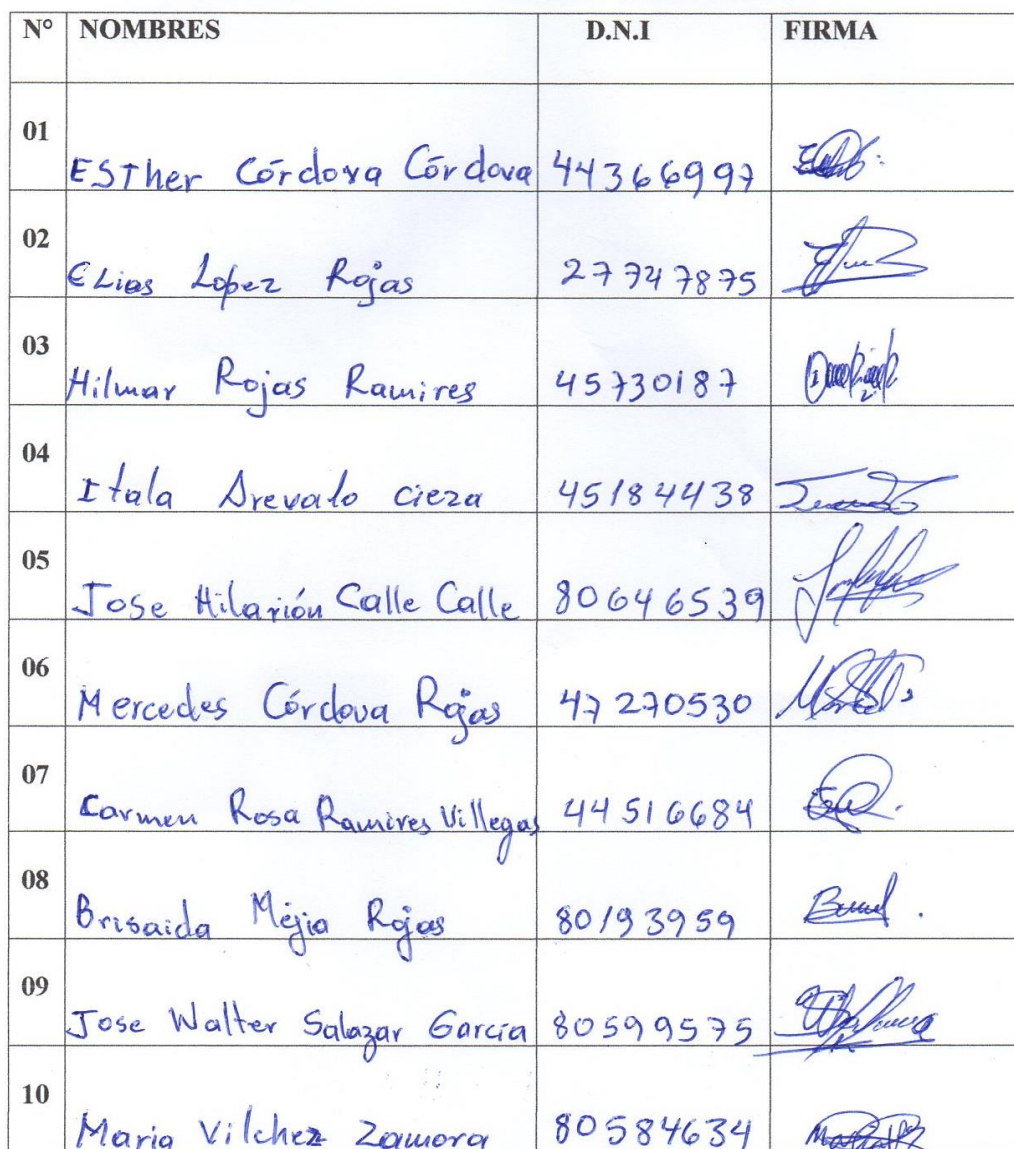 N° NOMBRES D.N.I FIRMA
01 ESTher Córdova Córdova 44366997
02 ELias Lopez Rojas 27747875
03 Hilmar Rojas Ramires 45730187
04 Itala Arevalo cieza 45184438
05 Jose Hilarión Calle Calle 80646539
06 Mercedes Córdova Rojas 47270530
07 Carmen Rosa Ramires Villegas 44516684
08 Brisaida Mejia Rojas 80193959
09 Jose Walter Salazar Garcia 80599575
10 Maria Vilchez Zamora 80584634